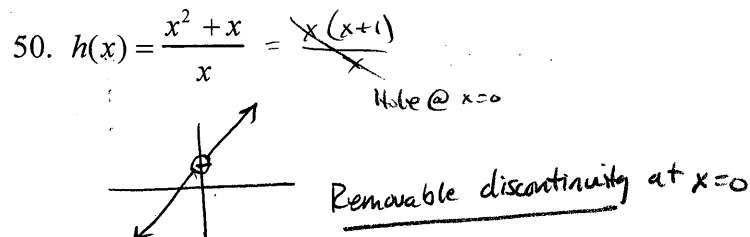 50. h(x) = \frac{x^2 + x}{x} = \frac{x(x+1)}{x}
Hole @ x=0
Removable discontinuity at x=0